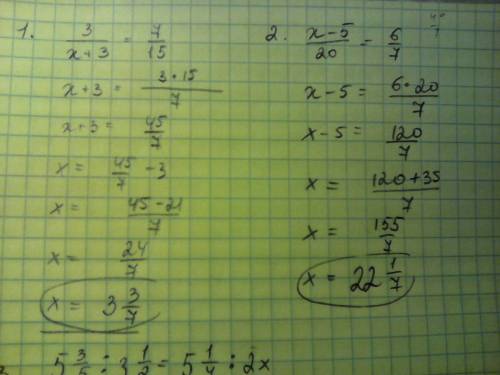 1. 3/(x+3) = 7/15
x+3 = (3·15)/7
x+3 = 45/7
x = 45/7 - 3
x = (45-21)/7
x = 24/7
x = 3 3/7
2. (x-5)/20 = 6/7
x-5 = (6·20)/7
x-5 = 120/7
x = (120+35)/7
x = 155/7
x = 22 1/7
5 3/5 : 3 1/2 = 5 1/4 : 2x